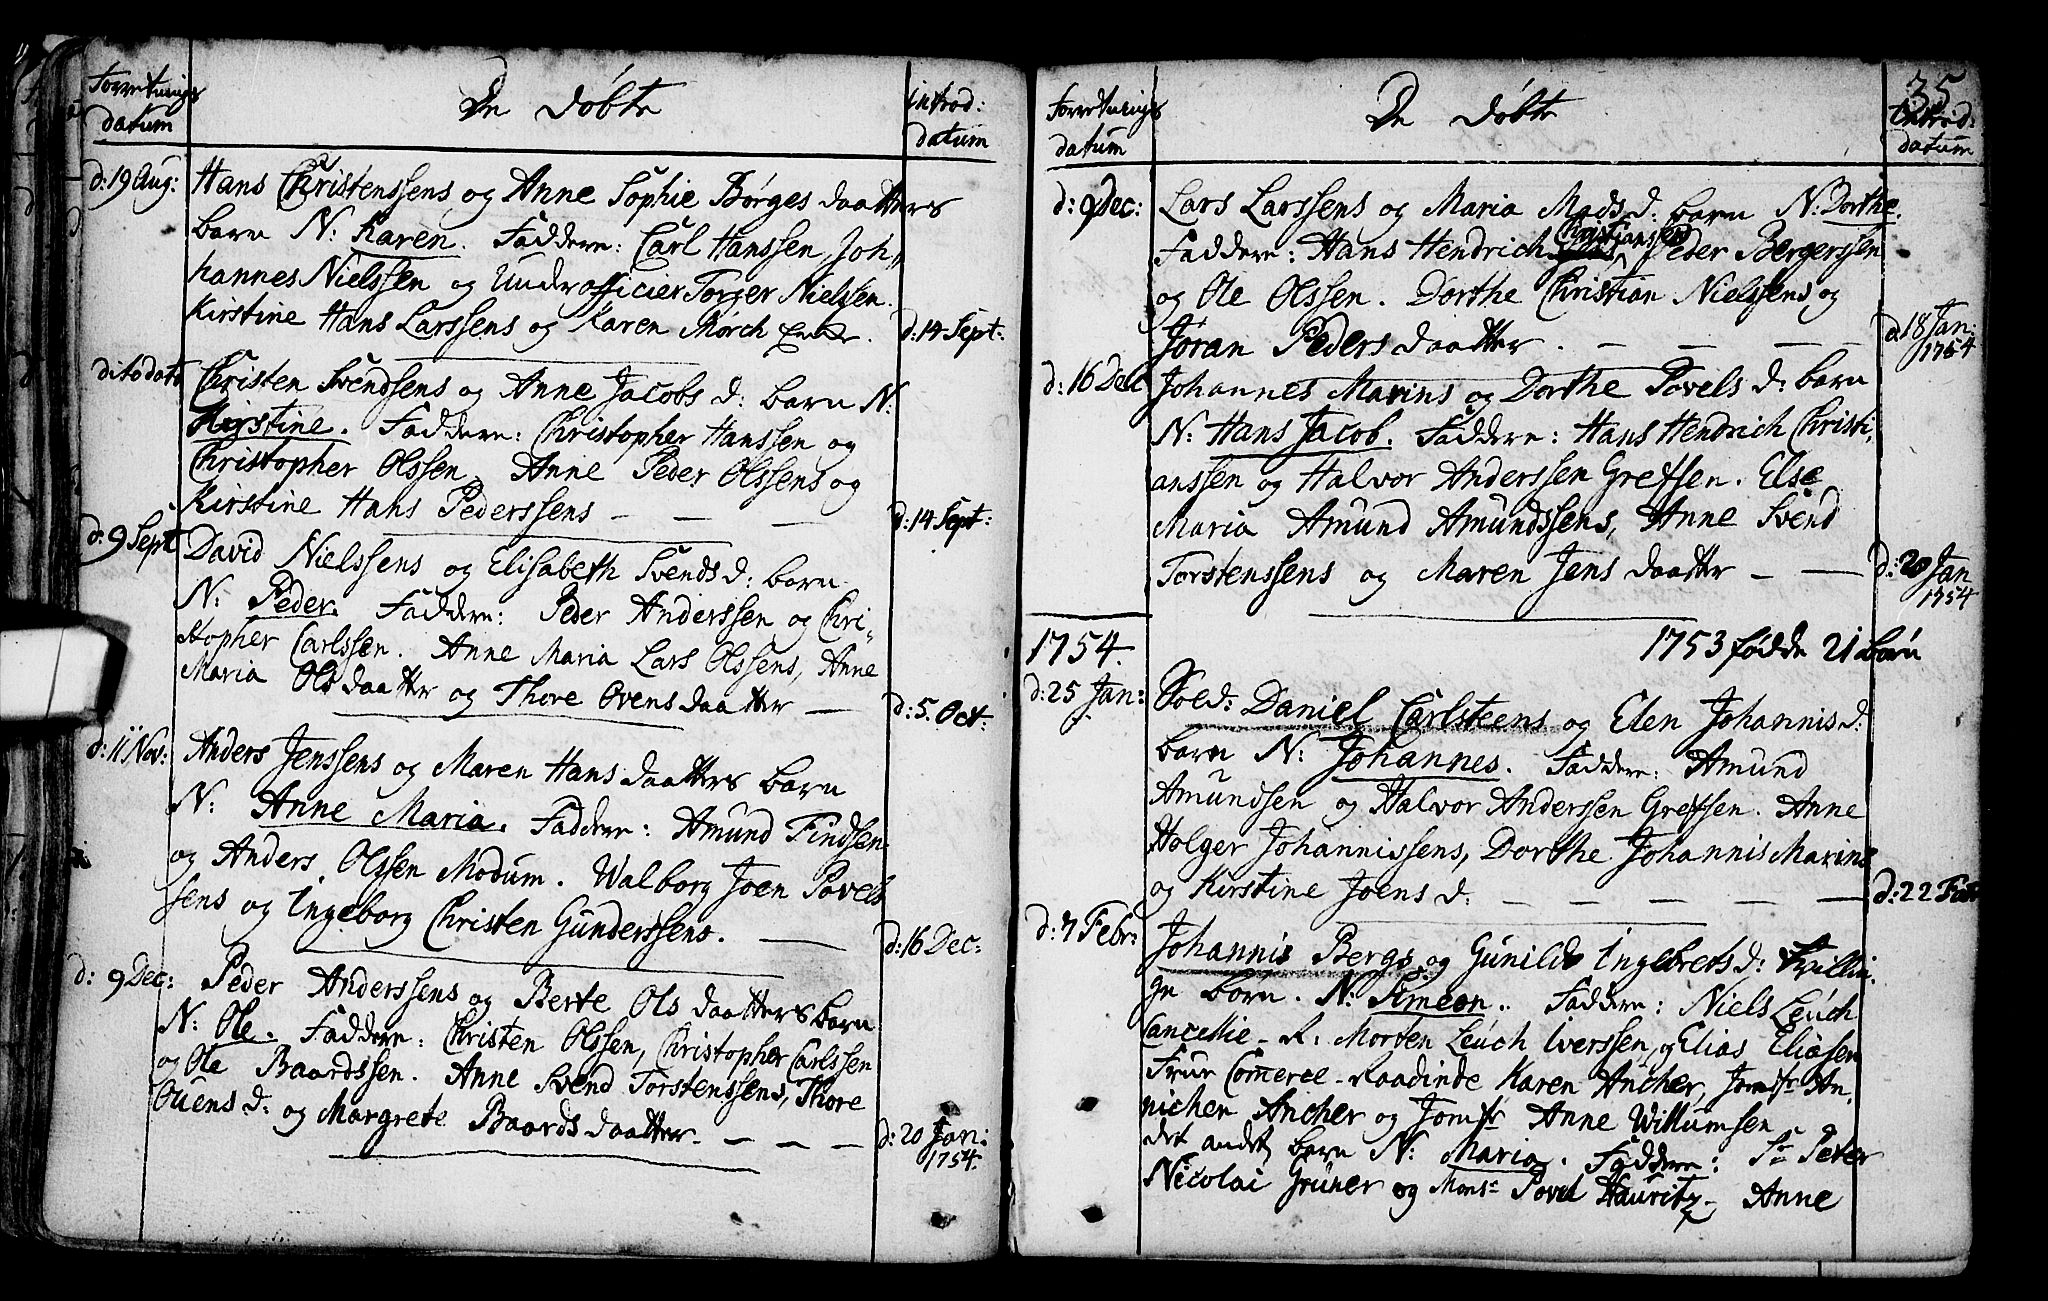 Forretnings datum
De Døbte
introd: datum
d: 19 Aug: Hans Christenssens og Anne Sophie Børges daatters
barn N: Karen. Faddere: Carl Hanssen, Joh-
hannes Nielssen og Underofficier Torger Nielssen.
Kirstine Hans Larssens og Karen Mørch Enke. d: 14 Sept:
dito dato Christen Svendsens og Anne Jacobs d: barn N:
Kirstine. Faddere: Christopher Hanssen og
Christopher Olssen, Anne Peder Olssens og
Kirstine Hans Pederssens — — — d: 14 Sept:
d: 9 Sept David Nielssens og Elisabeth Svends d: barn
N: Peder. Faddere: Peder Anderssen og Chri-
stopher Carlssen. Anne Maria Lars Olssens, Anne
Maria Ols daatter og Thore Ovens daatter — d: 5. Oct:
d: 11 Nov: Anders Jenssens og Maren Hans daatters barn
N: Anne Maria. Faddere: Amund Findsen
og Anders Olssen Modum. Walborg Joen Povels
sens og Ingeborg Christen Gunderssens. — d: 16 Dec:
d: 9 Dec: Peder Anderssens og Berte Ols daatters barn
N: Ole. Faddere: Christen Olssen, Christopher Carlssen
og Ole Baardssen. Anne Svend Torstenssens, Thore
Ouens d: og Margrete Baards daatter. — — — d: 20 Jan:
1754.
35
Forretnings datum
De Døbte
Introd: datum
d: 9 Dec: Lars Larssens og Maria Mads d: barn N: Dorthe.
Faddere: Hans Hendrich Christianssen, Peder Bergerssen
og Ole Olssen. Dorthe Christian Nielssens og
Jøran Peders daatter. — — — — d: 18 Jan:
1754
d: 16 Dec Johannes Marins og Dorthe Povels d: barn
N: Hans Jacob. Faddere: Hans Hendrich Christi-
anssen og Halvor Anderssen Grefsen. Else
Maria Amund Amundssens, Anne Svend
Torstenssens og Maren Jens daatter — — d: 20 Jan
1754
1754. 1753 fødde 21 børn
d: 25 Jan: Sold: Daniel Carlsteens og Elen Johannis d:
barn N: Johannes. Faddere: Amund
Amundsen og Halvor Anderssen Grefsen. Anne
Holger Johannissens, Dorthe Johannis Marins
og Kirstine Joens d: — — — — — d: 22 Febr
d: 7 Febr: Johannis Bergs og Gunild Ingebrets d: Tvillin-
ge børn. N: Simeon. Faddere: Niels Leuch
Cancellie-R. Morten Leuch Iverssen, og Elias Eliæsen
Frue Comerce-Raadinde Karen Ancher, Jomfr An-
nichen Ancher og Jomfr Anne Willumsen
det andet barn N: Maria. Faddere: Sr Peter
Nicolai Grüner og Monsr Povel Hauritz. Anne